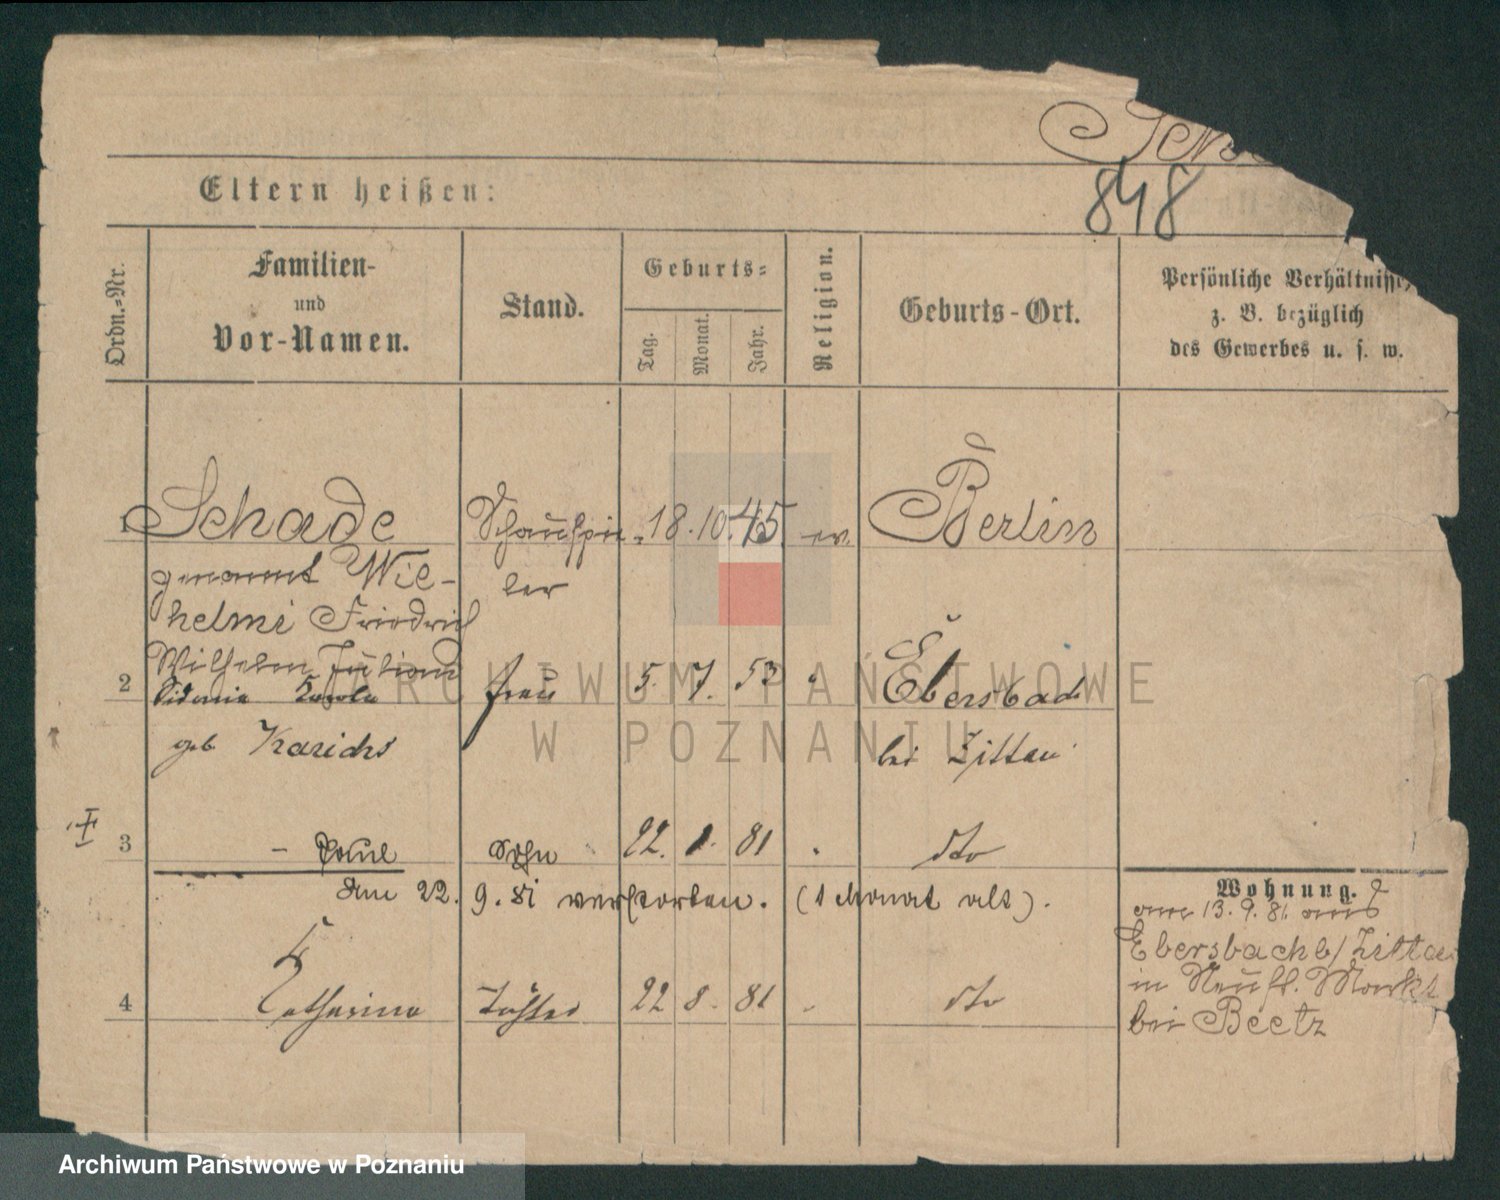 Sch
848
Eltern heißen:
Ordn.-Nr.
Familien-
und
Vor-Namen.
Stand.
Geburts-
Tag.
Monat.
Jahr.
Religion.
Geburts-Ort.
Persönliche Verhältnisse,
z. B. bezüglich
des Gewerbes u. s. w.
1 Schade Schauspie- 18. 10. 45 ev. Berlin
genannt Wil- ler
helmi Friedrich
Wilhelm Julious
2 Sidonie Frau 5. 7. 53 " Ebersbach
geb Karichs bei Zittau
3 - Paul Sohn 22. 8. 81 . dto
Am 22. 9. 81 verstorben. (1 Monat alt).
4 Catharina Tochter 22 8. 81 - dto
Wohnung.
am 13. 9. 81. aus
Ebersbach b/ Zittau
in Neust. Markt
bei Beetz
ARCHIWUM PAŃSTWOWE
W POZNANIU
Archiwum Państwowe w Poznaniu